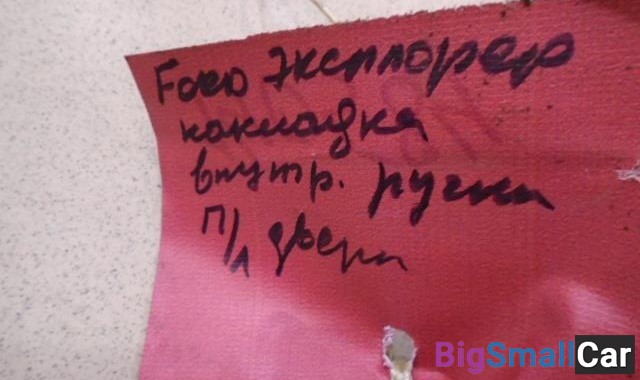 Ford Эксплорер
накладка
внутр. ручки
П/Л двери
BigSmallCar